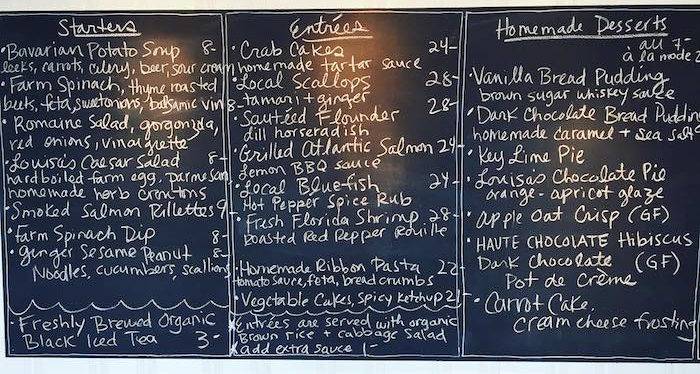 Starters
• Bavarian Potato Soup 8-
leeks, carrots, celery, beer, sour cream
• Farm Spinach, thyme roasted
beets, feta, sweet onions, balsamic vin 8-
• Romaine Salad, gorgonzola,
red onions, vinaigrette
• Louisa's Caesar Salad 8-
hardboiled farm egg, parmesan,
homemade herb croutons
• Smoked Salmon Rillettes 9-
• Farm Spinach Dip 8-
• Ginger Sesame Peanut 8-
Noodles, cucumbers, scallions
Freshly Brewed Organic
Black Iced Tea 3-
Entrées
• Crab Cakes 24-
homemade tartar sauce
• Local Scallops 28-
tamari + ginger
• Sautéed Flounder 28-
dill horseradish
• Grilled Atlantic Salmon 24-
Lemon BBQ sauce
• Local Bluefish 24-
Hot Pepper Spice Rub
• Fresh Florida Shrimp 28-
Roasted Red Pepper Rouille
• Homemade Ribbon Pasta 22-
tomato sauce, feta, bread crumbs
• Vegetable Cakes, spicy ketchup 21-
* Entrées are served with organic
Brown rice + cabbage salad
* add extra sauce 1-
Homemade Desserts
all 7-
à la mode 2
• Vanilla Bread Pudding
brown sugar whiskey sauce
• Dark Chocolate Bread Pudding
homemade caramel + sea salt
• Key Lime Pie
• Louisa's Chocolate Pie
orange-apricot glaze
• Apple Oat Crisp (GF)
• HAUTE CHOCOLATE Hibiscus
Dark Chocolate (GF)
Pot de Crème
• Carrot Cake,
Cream cheese frosting